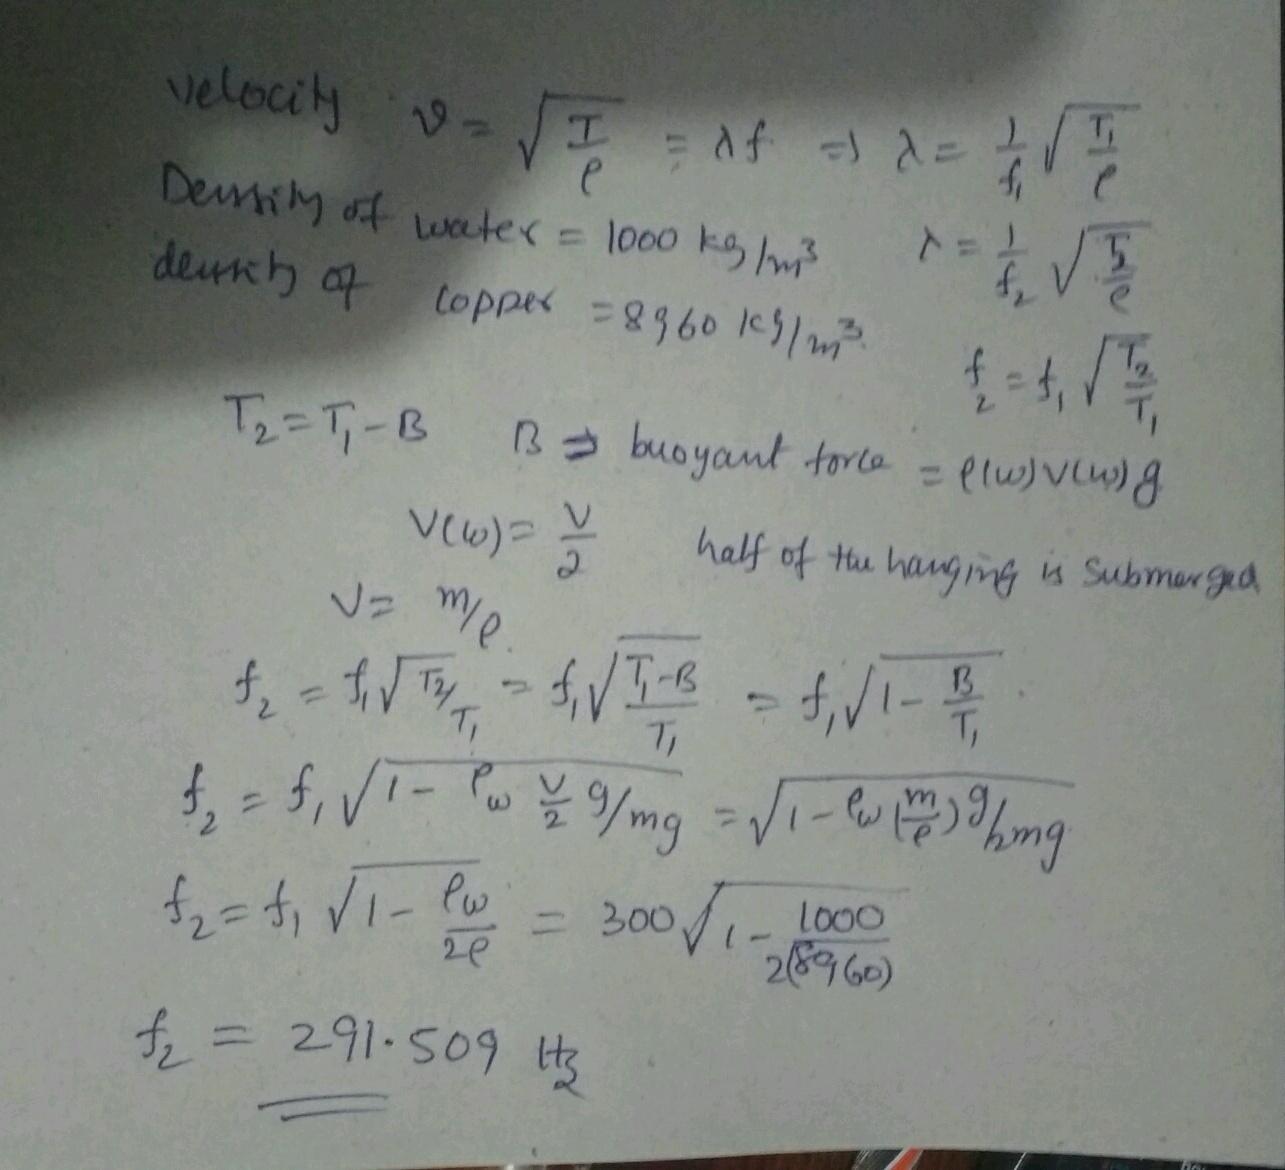 velocity v = √(T/ρ) = λf ⇒ λ = 1/f₁ √(T₁/ρ)
Density of water = 1000 kg/m³ λ = 1/f₂ √(T₂/ρ)
density of copper = 8960 kg/m³
f₂ = f₁ √(T₂/T₁)
T₂ = T₁ - B B ⇒ buoyant force = ρ(w) v(w) g
V(w) = V/2 half of the hanging is submerged
V = m/ρ.
f₂ = f₁ √(T₂/T₁) = f₁ √((T₁-B)/T₁) = f₁ √(1 - B/T₁) .
f₂ = f₁ √(1 - ρw V/2 g/mg) = √(1 - ρw (m/ρ) g/2mg)
f₂ = f₁ √(1 - ρw/2ρ) = 300 √(1 - 1000/2(8960))
f₂ = 291.509 Hz